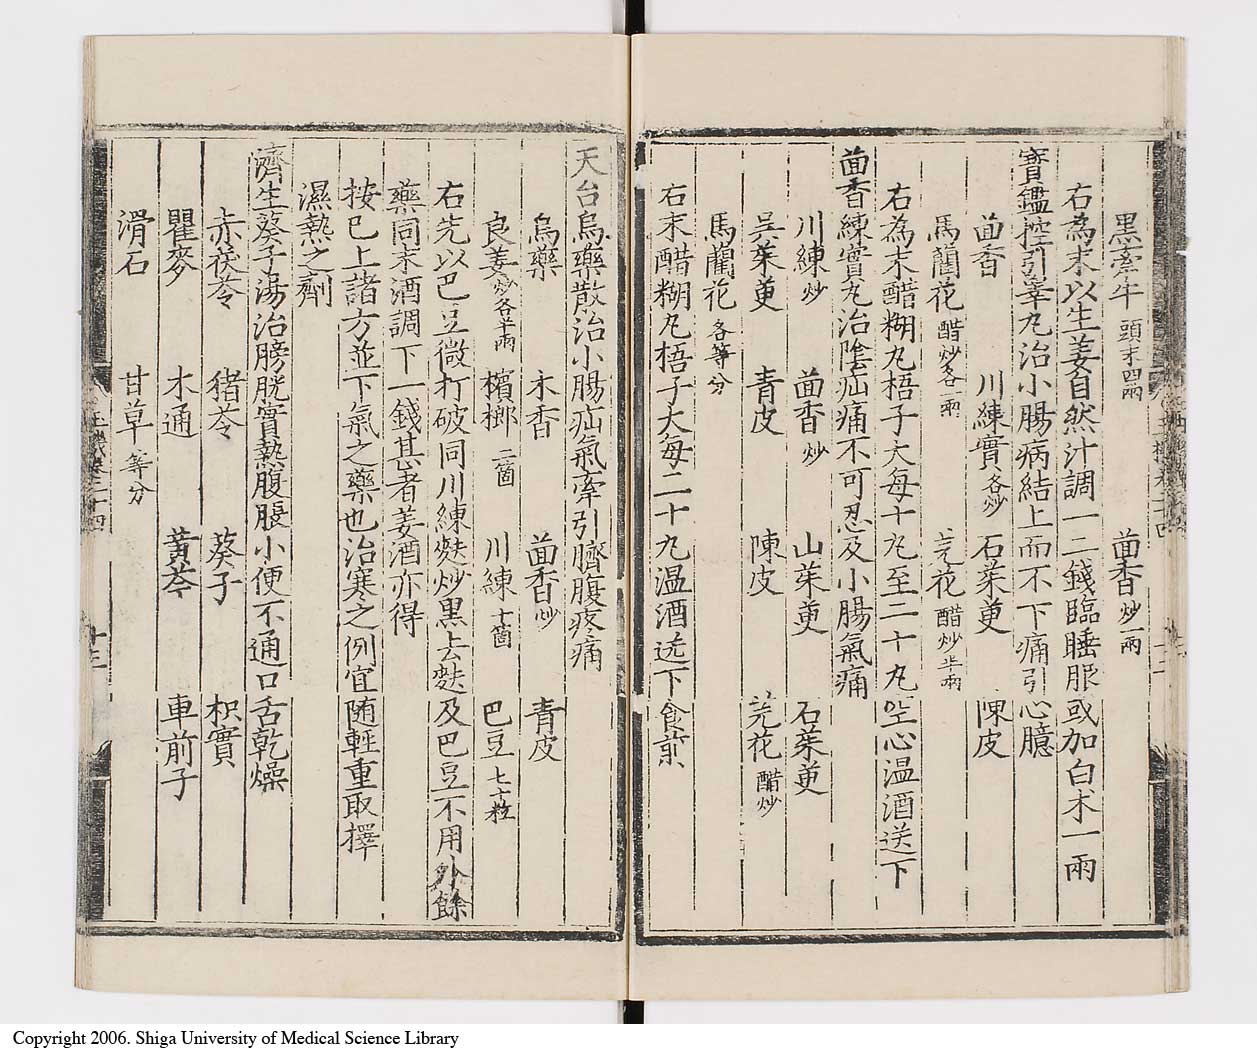 黑牽牛頭末四兩　茴香炒一兩
右為末以生姜自然汁調一二錢臨睡服或加白朮一兩
寳鑑控引睾丸治小腸病結上而不下痛引心臆
茴香　川練實各炒　石茱萸　陳皮
馬藺花醋炒各一兩　芫花醋炒半兩
右為末醋糊丸梧子大每十丸至二十丸空心温酒送下
茴香練實丸治陰疝痛不可忍及小腸氣痛
川練炒　茴香炒　山茱萸　石茱萸
吳茱萸　青皮　陳皮　芫花醋炒
馬藺花各等分
右末醋糊丸梧子大每二十丸温酒送下食前
天台烏藥散治小腸疝氣牽引臍腹疼痛
烏藥　木香　茴香炒　青皮
良姜炒各半兩　檳榔二箇　川練十箇　巴豆七十粒
右先以巴豆微打破同川練麩炒黑去麩及巴豆不用外餘
藥同末酒調下一錢甚者姜酒亦得
按已上諸方並下氣之藥也治寒之例宜随輕重取擇
濕熱之劑
濟生葵子湯治膀胱實熱腹脹小便不通口舌乾燥
赤茯苓　猪苓　葵子　枳實
瞿麥　木通　黃芩　車前子
滑石　甘草等分
十三
Copyright 2006. Shiga University of Medical Science Library